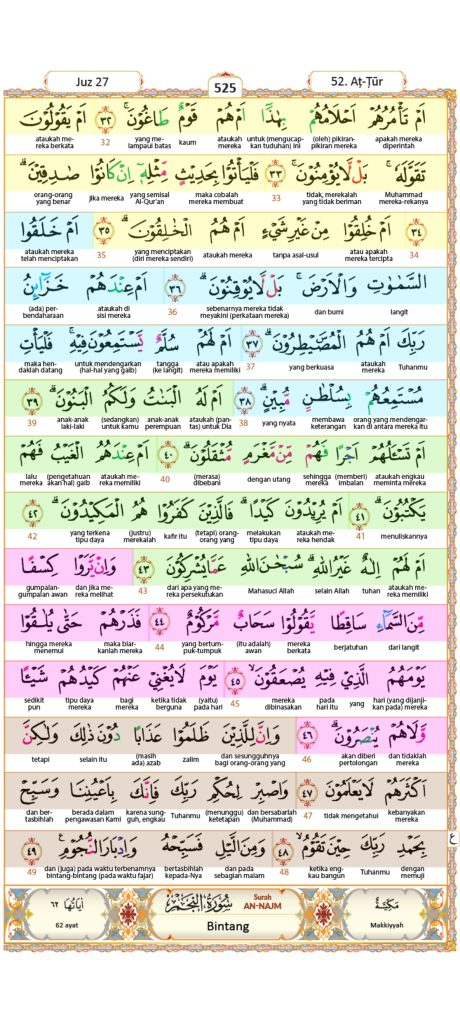 Juz 27
525
52. Aṭ-Ṭūr
اَمْ تَأْمُرُهُمْ اَحْلَامُهُمْ بِهٰذَآ اَمْ هُمْ قَوْمٌ طَاغُوْنَۚ ۝٣٢ اَمْ يَقُوْلُوْنَ
apakah mereka diperintah (oleh) pikiran-pikiran mereka untuk (mengucapkan tuduhan) ini ataukah mereka kaum yang melampaui batas 32 ataukah mereka berkata
تَقَوَّلَهٗۚ بَلْ لَّا يُؤْمِنُوْنَۚ ۝٣٣ فَلْيَأْتُوْا بِحَدِيْثٍ مِّثْلِهٖٓ اِنْ كَانُوْا صٰدِقِيْنَۗ
Muhammad mereka-rekanya tidak, merekalah yang tidak beriman 33 maka cobalah mereka membuat yang semisal Al-Qur'an jika mereka orang-orang yang benar
۝٣٤ اَمْ خُلِقُوْا مِنْ غَيْرِ شَيْءٍ اَمْ هُمُ الْخٰلِقُوْنَۗ ۝٣٥ اَمْ خَلَقُوا
34 atau apakah mereka tercipta tanpa asal-usul ataukah mereka yang menciptakan (diri mereka sendiri) 35 ataukah mereka telah menciptakan
السَّمٰوٰتِ وَالْاَرْضَۚ بَلْ لَّا يُوْقِنُوْنَۗ ۝٣٦ اَمْ عِنْدَهُمْ خَزَاۤىِٕنُ
langit dan bumi sebenarnya mereka tidak meyakini (perkataan mereka) 36 ataukah di sisi mereka (ada) perbendaharaan
رَبِّكَ اَمْ هُمُ الْمُصَۣيْطِرُوْنَۗ ۝٣٧ اَمْ لَهُمْ سُلَّمٌ يَّسْتَمِعُوْنَ فِيْهِۚ فَلْيَأْتِ
Tuhanmu ataukah mereka yang berkuasa 37 atau apakah mereka memiliki tangga (ke langit) untuk mendengarkan (hal-hal yang gaib) maka hendaklah datang
مُسْتَمِعُهُمْ بِسُلْطٰنٍ مُّبِيْنٍۗ ۝٣٨ اَمْ لَهُ الْبَنٰتُ وَلَكُمُ الْبَنُوْنَۗ ۝٣٩
orang yang mendengarkan di antara mereka itu membawa keterangan yang nyata 38 ataukah (pantas) untuk Dia anak-anak perempuan (sedangkan) untuk kamu anak-anak laki-laki 39
اَمْ تَسْـَٔلُهُمْ اَجْرًا فَهُمْ مِّنْ مَّغْرَمٍ مُّثْقَلُوْنَۗ ۝٤٠ اَمْ عِنْدَهُمُ الْغَيْبُ فَهُمْ
ataukah engkau meminta mereka (memberi) imbalan sehingga mereka dengan utang (merasa) dibebani 40 ataukah mereka memiliki (pengetahuan akan hal) gaib lalu mereka
يَكْتُبُوْنَۗ ۝٤١ اَمْ يُرِيْدُوْنَ كَيْدًاۗ فَالَّذِيْنَ كَفَرُوْا هُمُ الْمَكِيْدُوْنَۗ ۝٤٢
menuliskannya 41 ataukah mereka hendak melakukan tipu daya (tetapi) orang-orang yang kafir itu (justru) merekalah yang terkena tipu daya 42
اَمْ لَهُمْ اِلٰهٌ غَيْرُ اللّٰهِۗ سُبْحٰنَ اللّٰهِ عَمَّا يُشْرِكُوْنَ ۝٤٣ وَاِنْ يَّرَوْا كِسْفًا
ataukah mereka memiliki tuhan selain Allah Mahasuci Allah dari apa yang mereka persekutukan 43 dan jika mereka melihat gumpalan-gumpalan awan
مِّنَ السَّمَاۤءِ سَاقِطًا يَّقُوْلُوْا سَحَابٌ مَّرْكُوْمٌ ۝٤٤ فَذَرْهُمْ حَتّٰى يُلٰقُوْا
dari langit berjatuhan mereka berkata (itu adalah) awan yang bertumpuk-tumpuk 44 maka biarkanlah mereka hingga mereka menemui
يَوْمَهُمُ الَّذِيْ فِيْهِ يُصْعَقُوْنَۙ ۝٤٥ يَوْمَ لَا يُغْنِيْ عَنْهُمْ كَيْدُهُمْ شَيْـًٔا
hari (yang dijanjikan pada) mereka yang pada hari itu mereka dibinasakan 45 (yaitu) pada hari ketika tidak berguna bagi mereka tipu daya mereka sedikit pun
وَّلَا هُمْ يُنْصَرُوْنَۗ ۝٤٦ وَاِنَّ لِلَّذِيْنَ ظَلَمُوْا عَذَابًا دُوْنَ ذٰلِكَ وَلٰكِنَّ
dan tidaklah mereka akan diberi pertolongan 46 dan sesungguhnya bagi orang-orang yang zalim (masih ada) azab selain itu tetapi
اَكْثَرَهُمْ لَا يَعْلَمُوْنَ ۝٤٧ وَاصْبِرْ لِحُكْمِ رَبِّكَ فَاِنَّكَ بِاَعْيُنِنَا وَسَبِّحْ
kebanyakan mereka tidak mengetahui 47 dan bersabarlah (Muhammad) (menunggu) ketetapan Tuhanmu karena sungguh, engkau berada dalam pengawasan Kami dan bertasbihlah
بِحَمْدِ رَبِّكَ حِيْنَ تَقُوْمُۙ ۝٤٨ وَمِنَ الَّيْلِ فَسَبِّحْهُ وَاِدْبَارَ النُّجُوْمِۚ ۝٤٩ ع
dengan memuji Tuhanmu ketika engkau bangun 48 dan pada sebagian malam bertasbihlah kepada-Nya dan (juga) pada waktu terbenamnya bintang-bintang (pada waktu fajar) 49
مَكِّيَّةٌ Surah AN-NAJM سُوْرَةُ النَّجْمِ اٰيَاتُهَا ٦٢
Makkiyyah Bintang 62 ayat